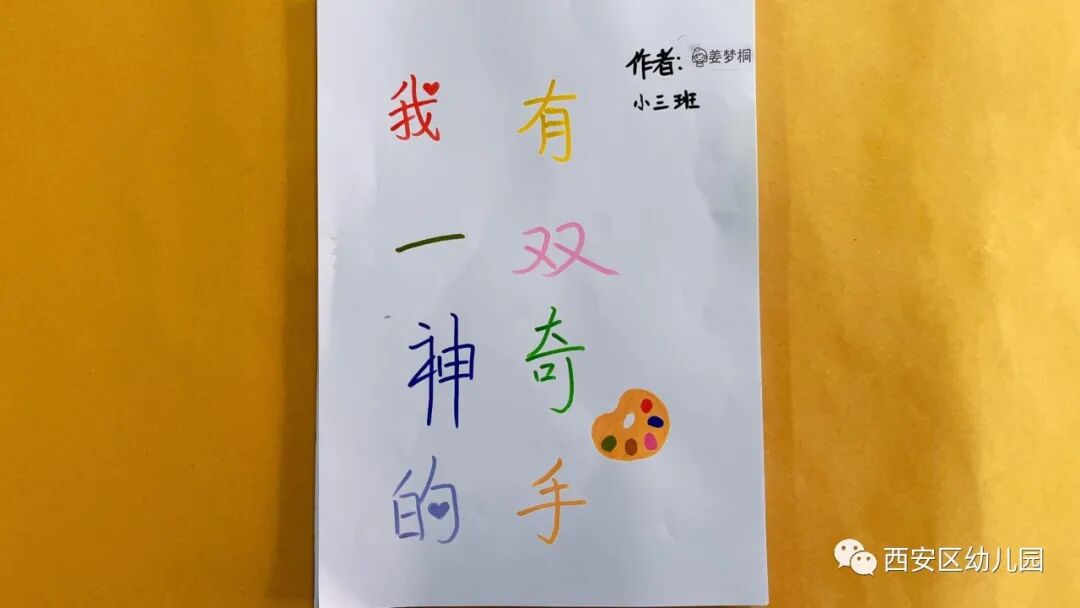 作者：姜梦桐
小三班
我有
一双
神奇
的手
西安区幼儿园